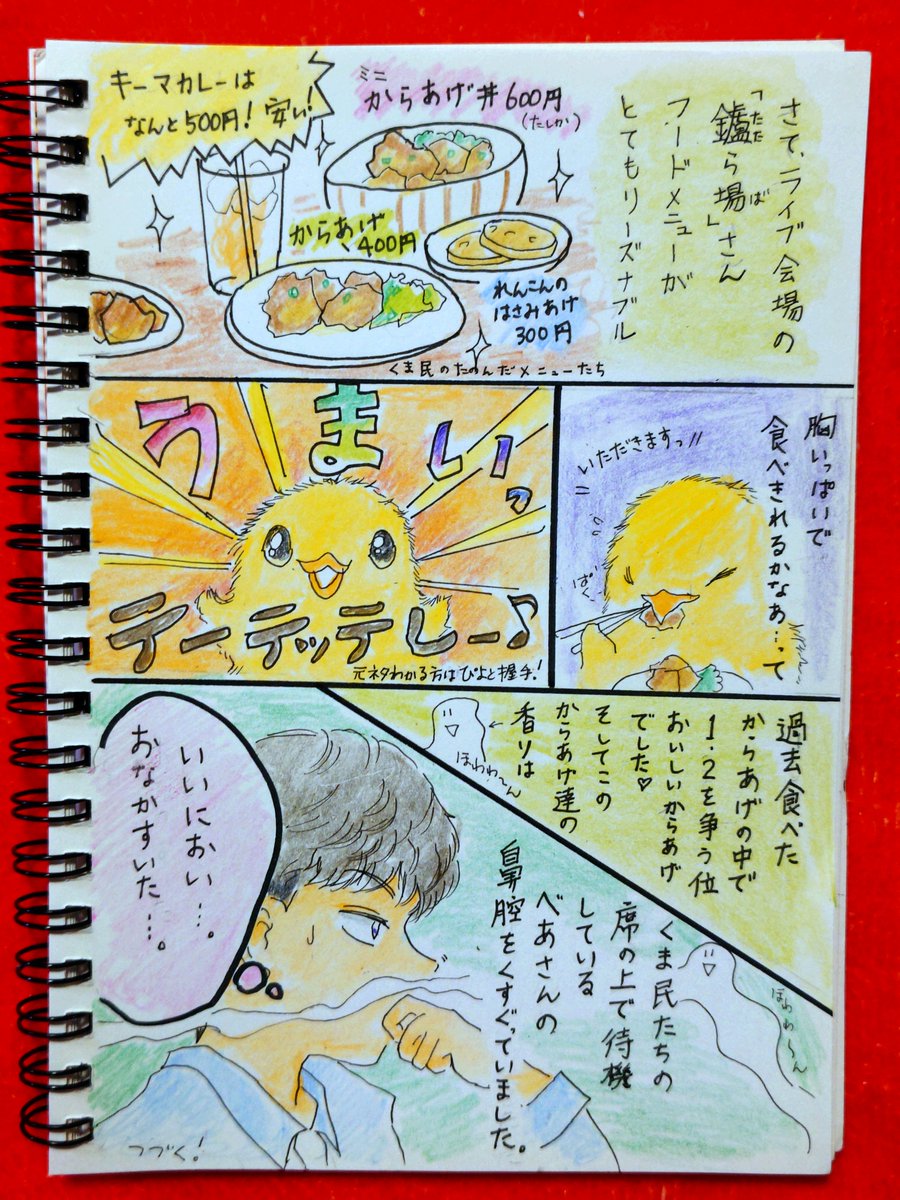 さて、ライブ会場の
「鑪ら場」さん
たた
ば
フードメニューが
とてもリーズナブル
ミニ
からあげ丼600円
(たしか)
キーマカレーは
なんと500円!安い!
からあげ
400円
れんこんの
はさみあげ
300円
くま民のたのんだメニューたち
胸いっぱいで
食べきれるかなあ…って
いただきますっ!!
ぱく
うまいっ
テーテッテレー♪
元ネタわかる方はぴよと握手!
過去食べた
からあげの中で
1.2を争う位
おいしいからあげ
でした♡
そしてこの
からあげ達の
香りは
ほわわ〜ん
くま民たちの
席の上で待機
している
べあさんの
鼻腔をくすぐっていました。
ほわわ〜ん
いいにおい…。
おなかすいた…。
つづく!